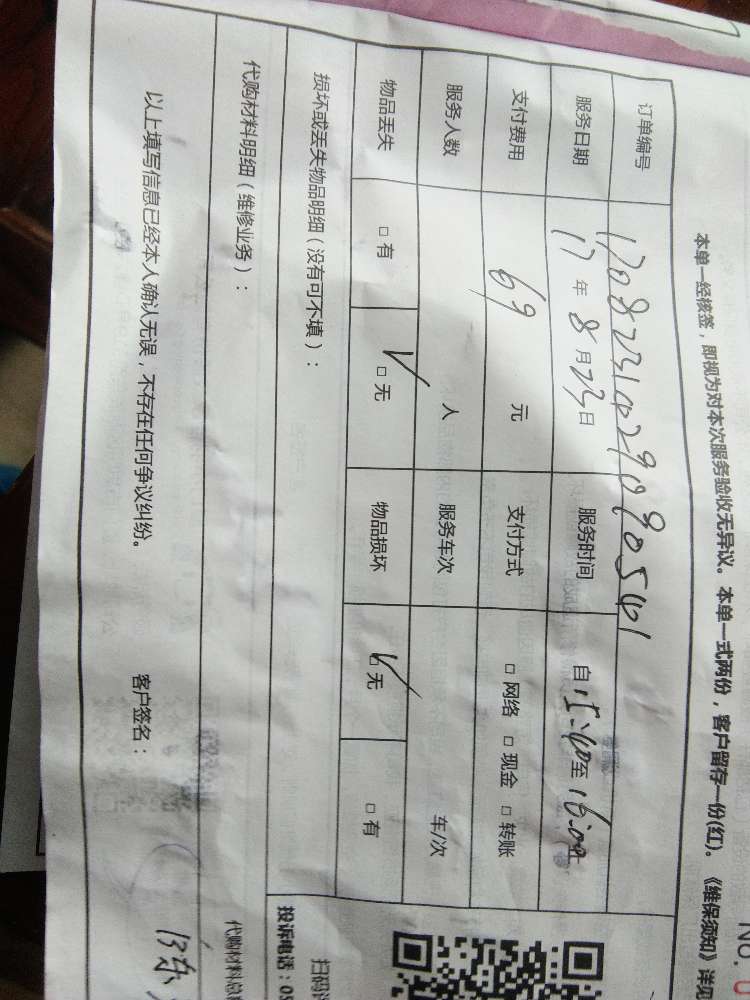 No. 0
本单一经核签，即视为对本次服务验收无异议。本单一式两份，客户留存一份(红)。《维保须知》详见
订单编号
服务日期 17年8月23日 服务时间 自15:40至16:00止
支付费用 69 元 支付方式 □网络 □现金 □转账
服务人数 人 服务车次 车/次
物品丢失 □有 ✓□无 物品损坏 ✓□无 □有
损坏或丢失物品明细（没有可不填）：
代购材料明细（维修业务）：
代购材料总
以上填写信息已经本人确认无误，不存在任何争议纠纷。 客户签名：
扫码
投诉电话：05